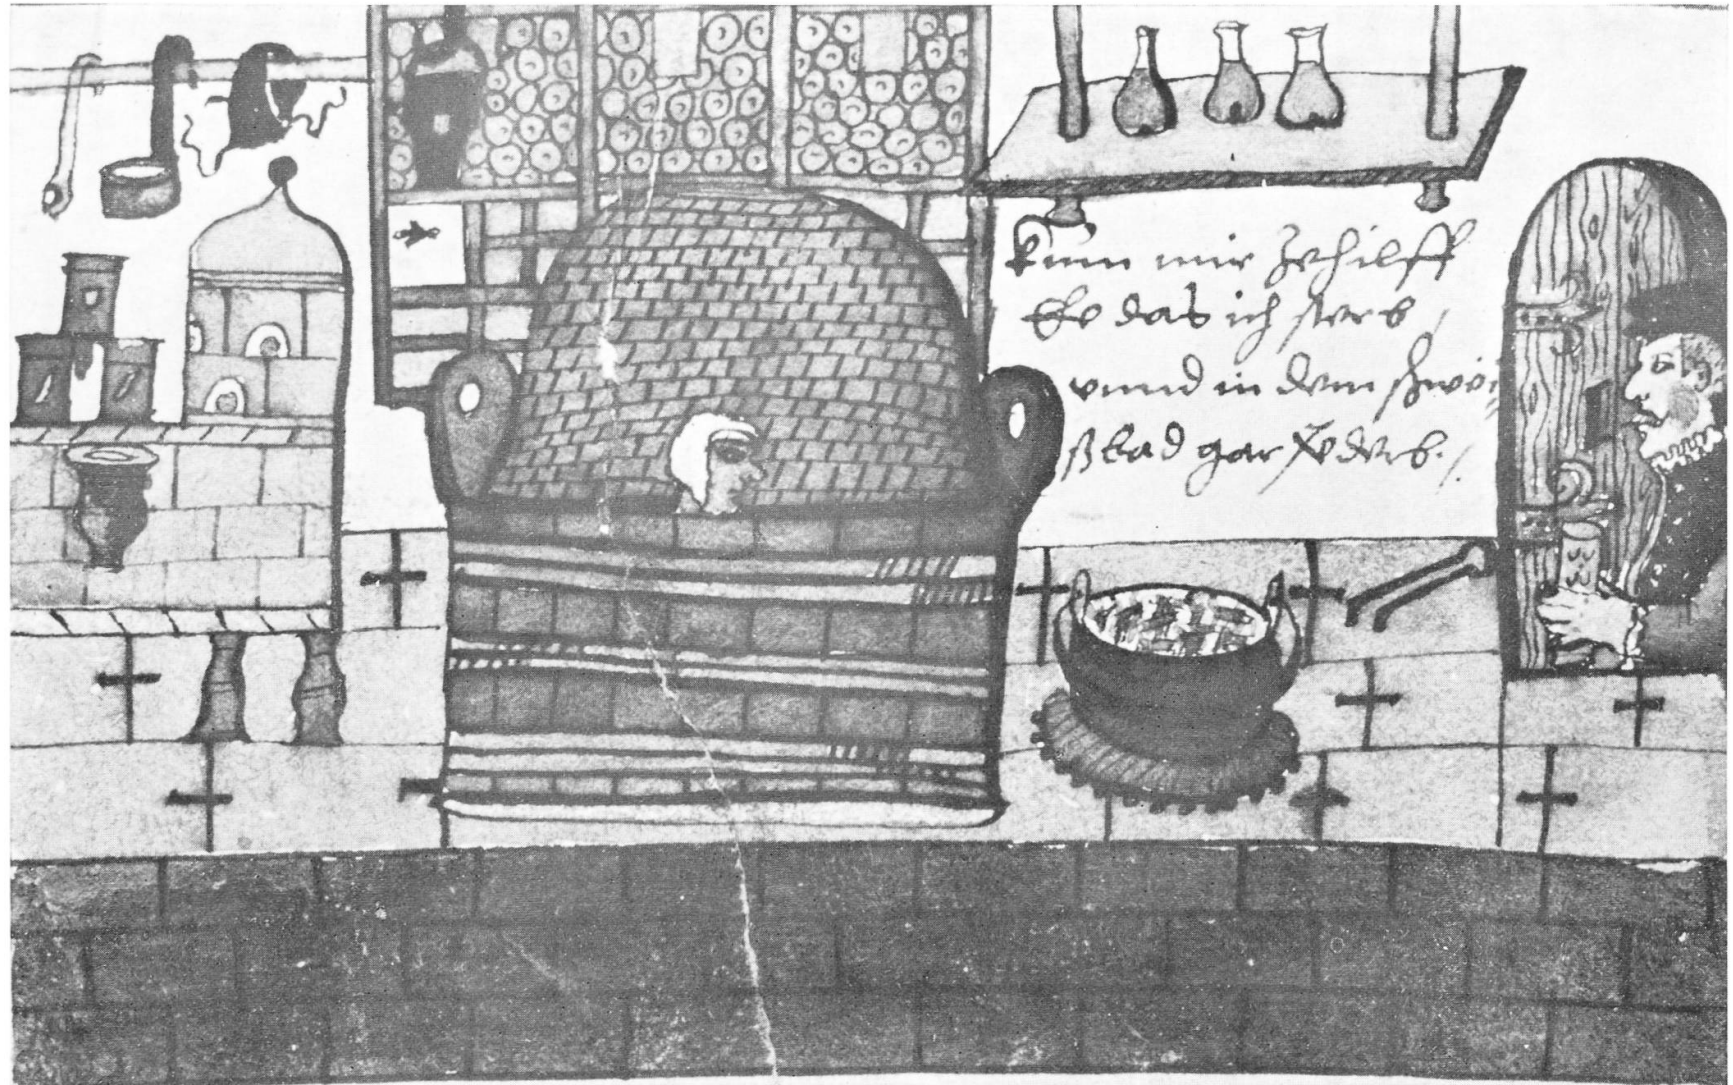 kum mir zehilff
Ee das ich sterb /
vnnd in dem schwei
ßbad gar verderb. /.